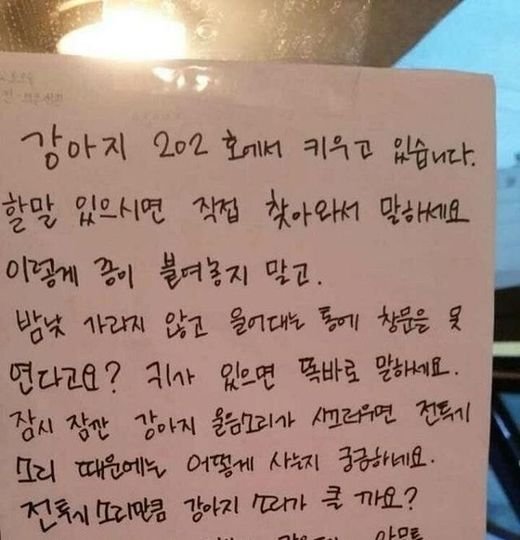 강아지 202 호에서 키우고 있습니다.
할말 있으시면 직접 찾아와서 말하세요
이렇게 종이 붙여놓지 말고.
밤낮 가리지 않고 울어대는 통에 창문을 못
연다고요? 귀가 있으면 똑바로 말하세요.
잠시 잠깐 강아지 울음소리가 시끄러우면 전투기
소리 때문에는 어떻게 사는지 궁금하네요.
전투기 소리만큼 강아지 소리가 클 까요?